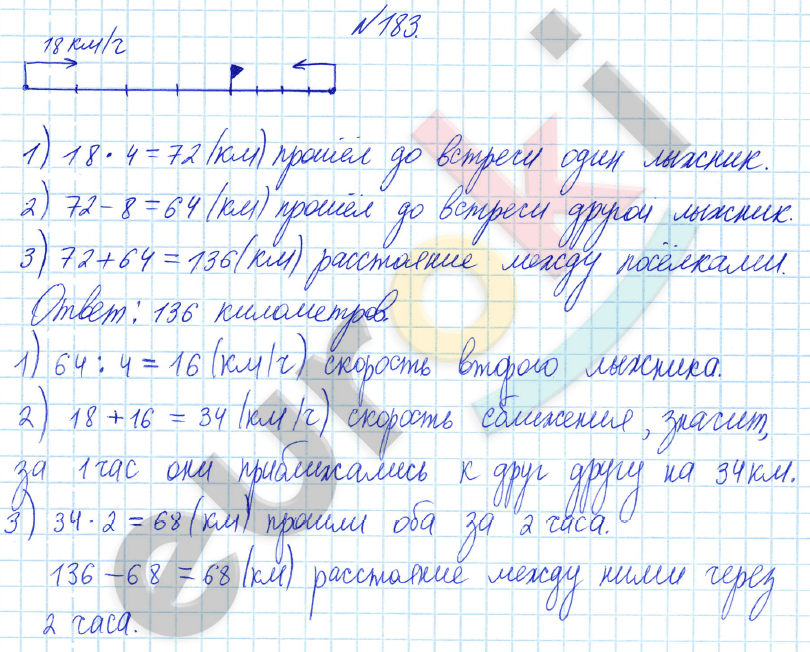 №183.
18 км/ч
1) 18 · 4 = 72 (км) прошёл до встречи один лыжник.
2) 72 - 8 = 64 (км) прошёл до встречи другой лыжник.
3) 72 + 64 = 136 (км) расстояние между посёлками.
Ответ: 136 километров.
1) 64 : 4 = 16 (км/ч) скорость второго лыжника.
2) 18 + 16 = 34 (км/ч) скорость сближения, значит,
за 1 час они приближались к друг другу на 34 км.
3) 34 · 2 = 68 (км) прошли оба за 2 часа.
136 - 68 = 68 (км) расстояние между ними через
2 часа.
euroki